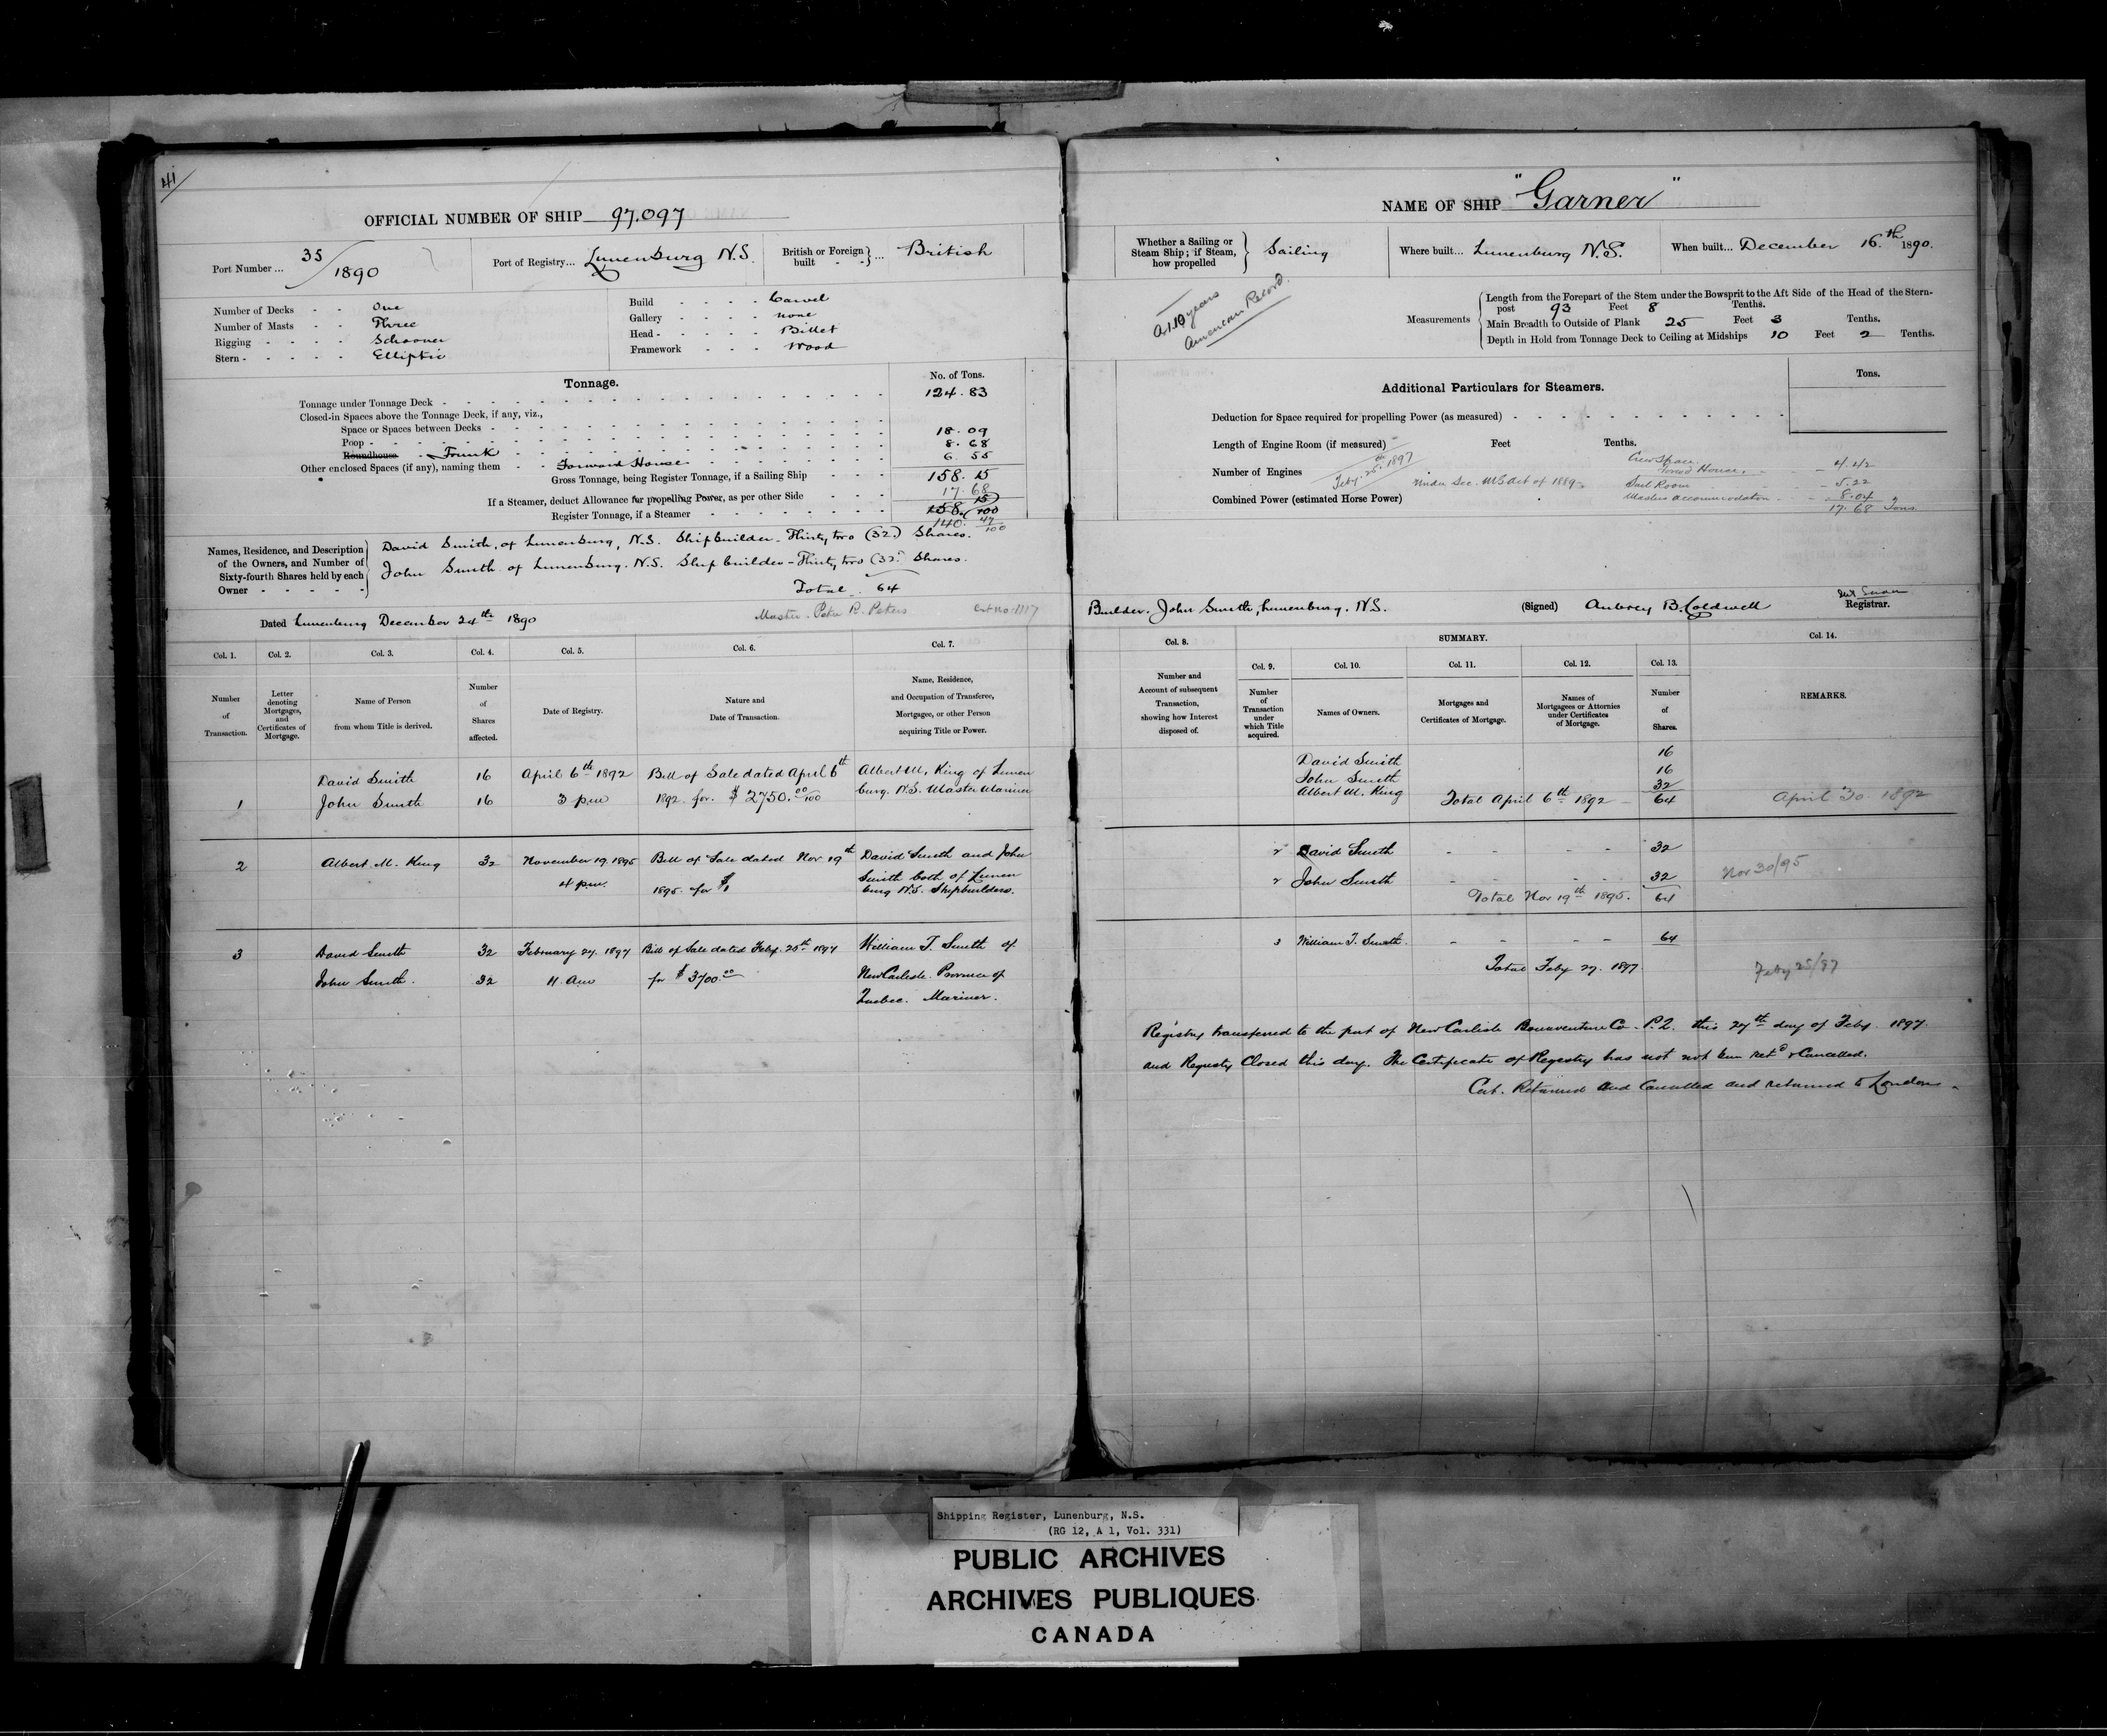 41
OFFICIAL NUMBER OF SHIP 97.097
Port Number ... 35/1890
Port of Registry... Lunenburg N.S.
British or Foreign built - - } ... British
Number of Decks - - One
Number of Masts - - Three
Rigging - - - - Schooner
Stern - - - - - Elliptic
Build - - - - Carvel
Gallery - - - - none
Head - - - - - Billet
Framework - - - Wood
Tonnage.
No. of Tons.
Tonnage under Tonnage Deck - 124.83
Closed-in Spaces above the Tonnage Deck, if any, viz.,
Space or Spaces between Decks -
Poop - 18.09
Roundhouse - Trunk - 8.68
Other enclosed Spaces (if any), naming them - - Forward House - 6.55
Gross Tonnage, being Register Tonnage, if a Sailing Ship - - - 158.15
If a Steamer, deduct Allowance for propelling Power, as per other Side - - - 17.68
Register Tonnage, if a Steamer - 158. 15/100
140. 47/100
Names, Residence, and Description of the Owners, and Number of Sixty-fourth Shares held by each Owner - - - - -
David Smith, of Lunenburg, N.S. Shipbuilder - Thirty two (32) Shares.
John Smith of Lunenburg. N.S. Ship builder - Thirty two (32) Shares.
Total. 64
Dated Lunenburg December 24th 1890
Master. Peter R. Peters
Cert no 1117
Col. 1. Col. 2. Col. 3. Col. 4. Col. 5. Col. 6. Col. 7.
Number of Transaction.
Letter denoting Mortgages, and Certificates of Mortgage.
Name of Person from whom Title is derived.
Number of Shares affected.
Date of Registry.
Nature and Date of Transaction.
Name, Residence, and Occupation of Transferee, Mortgagee, or other Person acquiring Title or Power.
David Smith 16 April 6th 1892 Bill of Sale dated April 6th Albert M. King of Lunen
1 John Smith 16 3 p.m 1892 for $2750.00/100 burg. N.S. Master Mariner
2 Albert M. King 32 November 19. 1895 Bill of Sale dated Nov. 19th David Smith and John
4 p.m. 1895. for $1 Smith both of Lunen
burg N.S. Shipbuilders.
3 David Smith 32 February 27. 1897 Bill of Sale dated Feby. 25th 1897 William T. Smith of
John Smith. 32 11. am for $3700.00 New Carlisle. Province of
Quebec. Mariner.
NAME OF SHIP "Garner"
Whether a Sailing or Steam Ship; if Steam, how propelled } Sailing
Where built... Lunenburg N.S.
When built... December 16.th 1890.
A.1.10 years
American Record.
Measurements
Length from the Forepart of the Stem under the Bowsprit to the Aft Side of the Head of the Stern-
post 93 Feet 8 Tenths.
Main Breadth to Outside of Plank 25 Feet 3 Tenths.
Depth in Hold from Tonnage Deck to Ceiling at Midships 10 Feet 2 Tenths.
Additional Particulars for Steamers.
Tons.
Deduction for Space required for propelling Power (as measured) -
Length of Engine Room (if measured) Feet Tenths.
Number of Engines
Combined Power (estimated Horse Power)
Feby. 25th 1897
Under Sec. M S Act of 1889
Crew Space.
Forwd House. - - 4.42
Sail Room - 5.22
Masters accommodation. - - 8.04
17.68 Tons
Builder. John Smith, Lunenburg. N.S.
(Signed) Aubrey B. Coldwell
Registrar.
Col. 8. SUMMARY. Col. 14.
Col. 9. Col. 10. Col. 11. Col. 12. Col. 13.
Number and Account of subsequent Transaction, showing how Interest disposed of.
Number of Transaction under which Title acquired.
Names of Owners.
Mortgages and Certificates of Mortgage.
Names of Mortgagees or Attornies under Certificates of Mortgage.
Number of Shares.
REMARKS.
David Smith 16
John Smith 16
Albert M. King 32
Total April 6th 1892 - 64 April 30 1892
2 David Smith - - - - 32
2 John Smith - - - - 32 Nov 30/95
Total Nov 19th 1895. 64
3 William T. Smith. - - - - 64
Total Feby 27. 1897. Feby 25/97
Registry transferred to the port of New Carlisle Bonaventure Co - P.Q. this 27th day of Feby. 1897.
and Registry Closed this day. The Certificate of Registry has not not been retd & Cancelled.
Cert. Returned and Cancelled and returned to London.
Shipping Register, Lunenburg, N.S.
(RG 12, A 1, Vol. 331)
PUBLIC ARCHIVES
ARCHIVES PUBLIQUES
CANADA